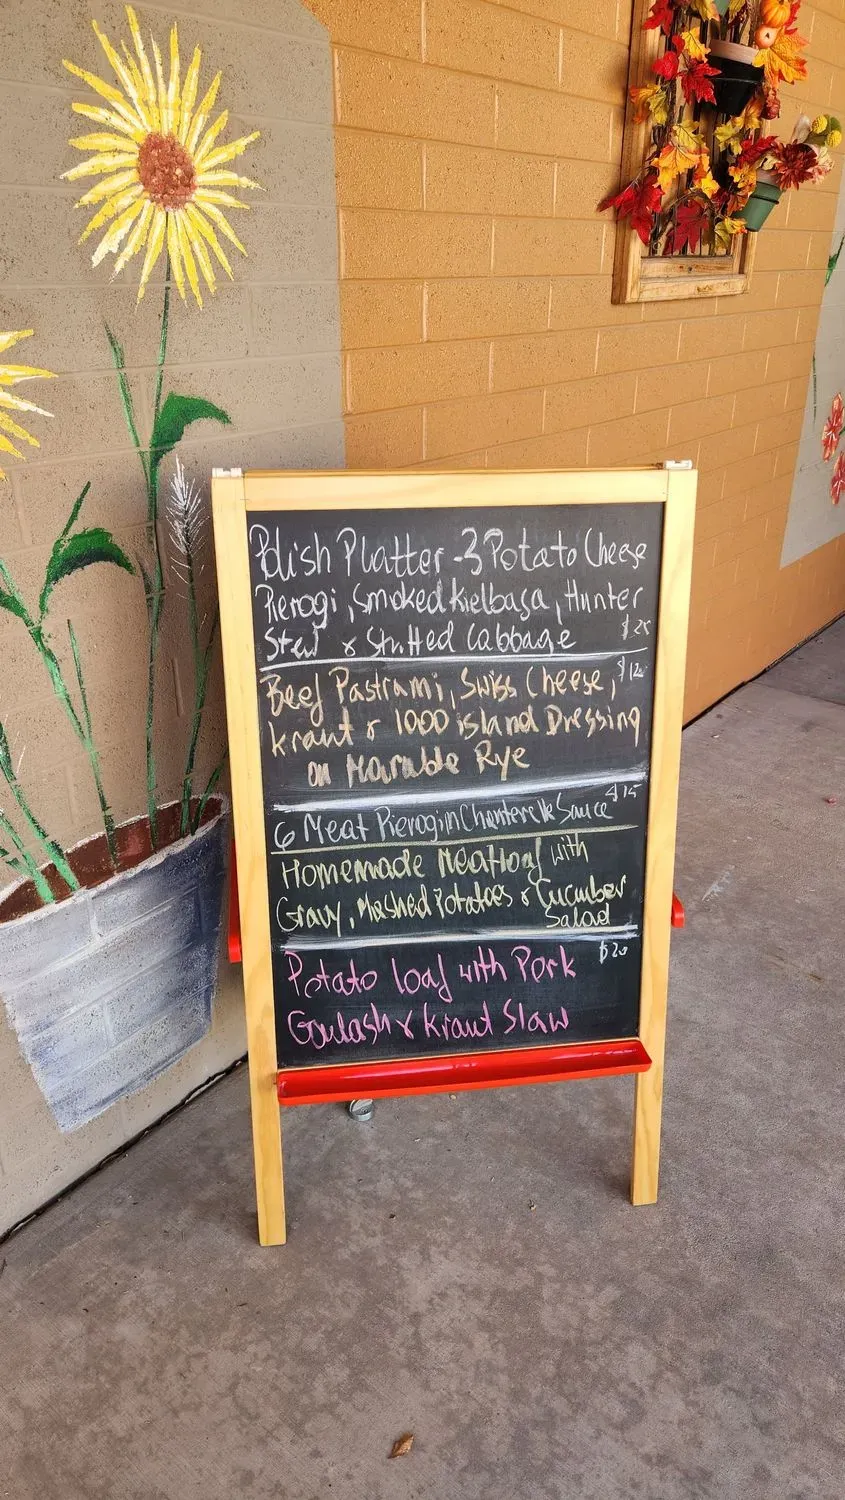 Polish Platter - 3 Potato Cheese
Pierogi, Smoked Kielbasa, Hunter
Stew & Stuffed Cabbage $25
Beef Pastrami, Swiss Cheese, $12
kraut & 1000 island Dressing
on Marable Rye
6 Meat Pierogi in Chanterelle Sauce $15
Homemade Meatloaf with
Gravy, Mashed Potatoes & Cucumber
Salad
Potato loaf with Pork $20
Goulash & kraut Slaw